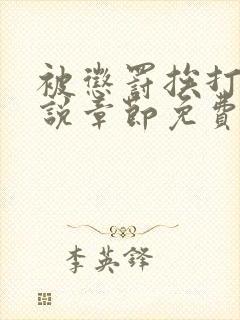 被懲罰挨打
說章節免費
李英鋒